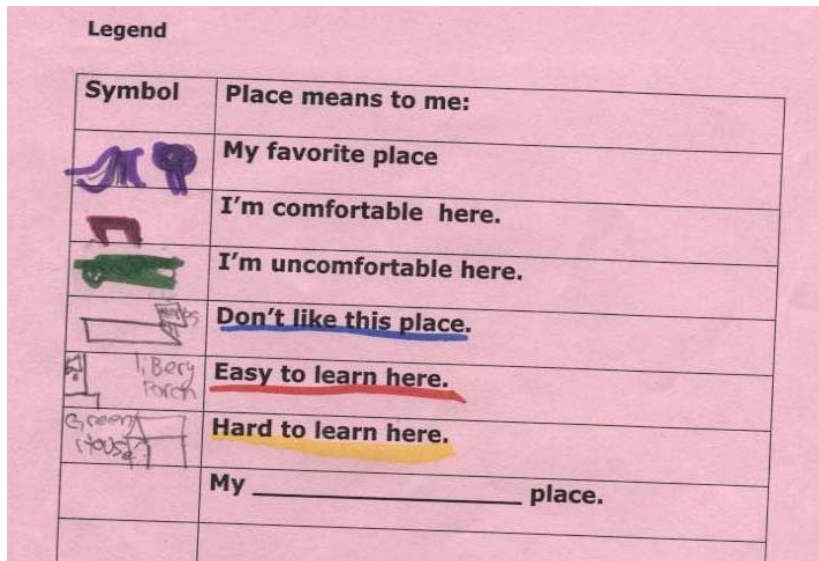 Legend
Symbol Place means to me:
My favorite place
I'm comfortable here.
I'm uncomfortable here.
Don't like this place.
liBery
Porch
Easy to learn here.
Green
House
Hard to learn here.
My ____________________ place.